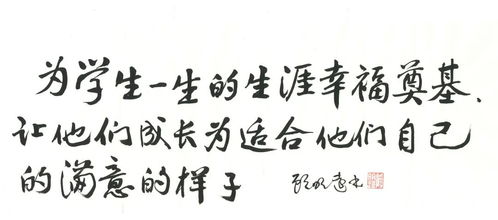 为学生一生的生涯幸福奠基、
让他们成长为适合他们自己
的满意的样子 顾明远书